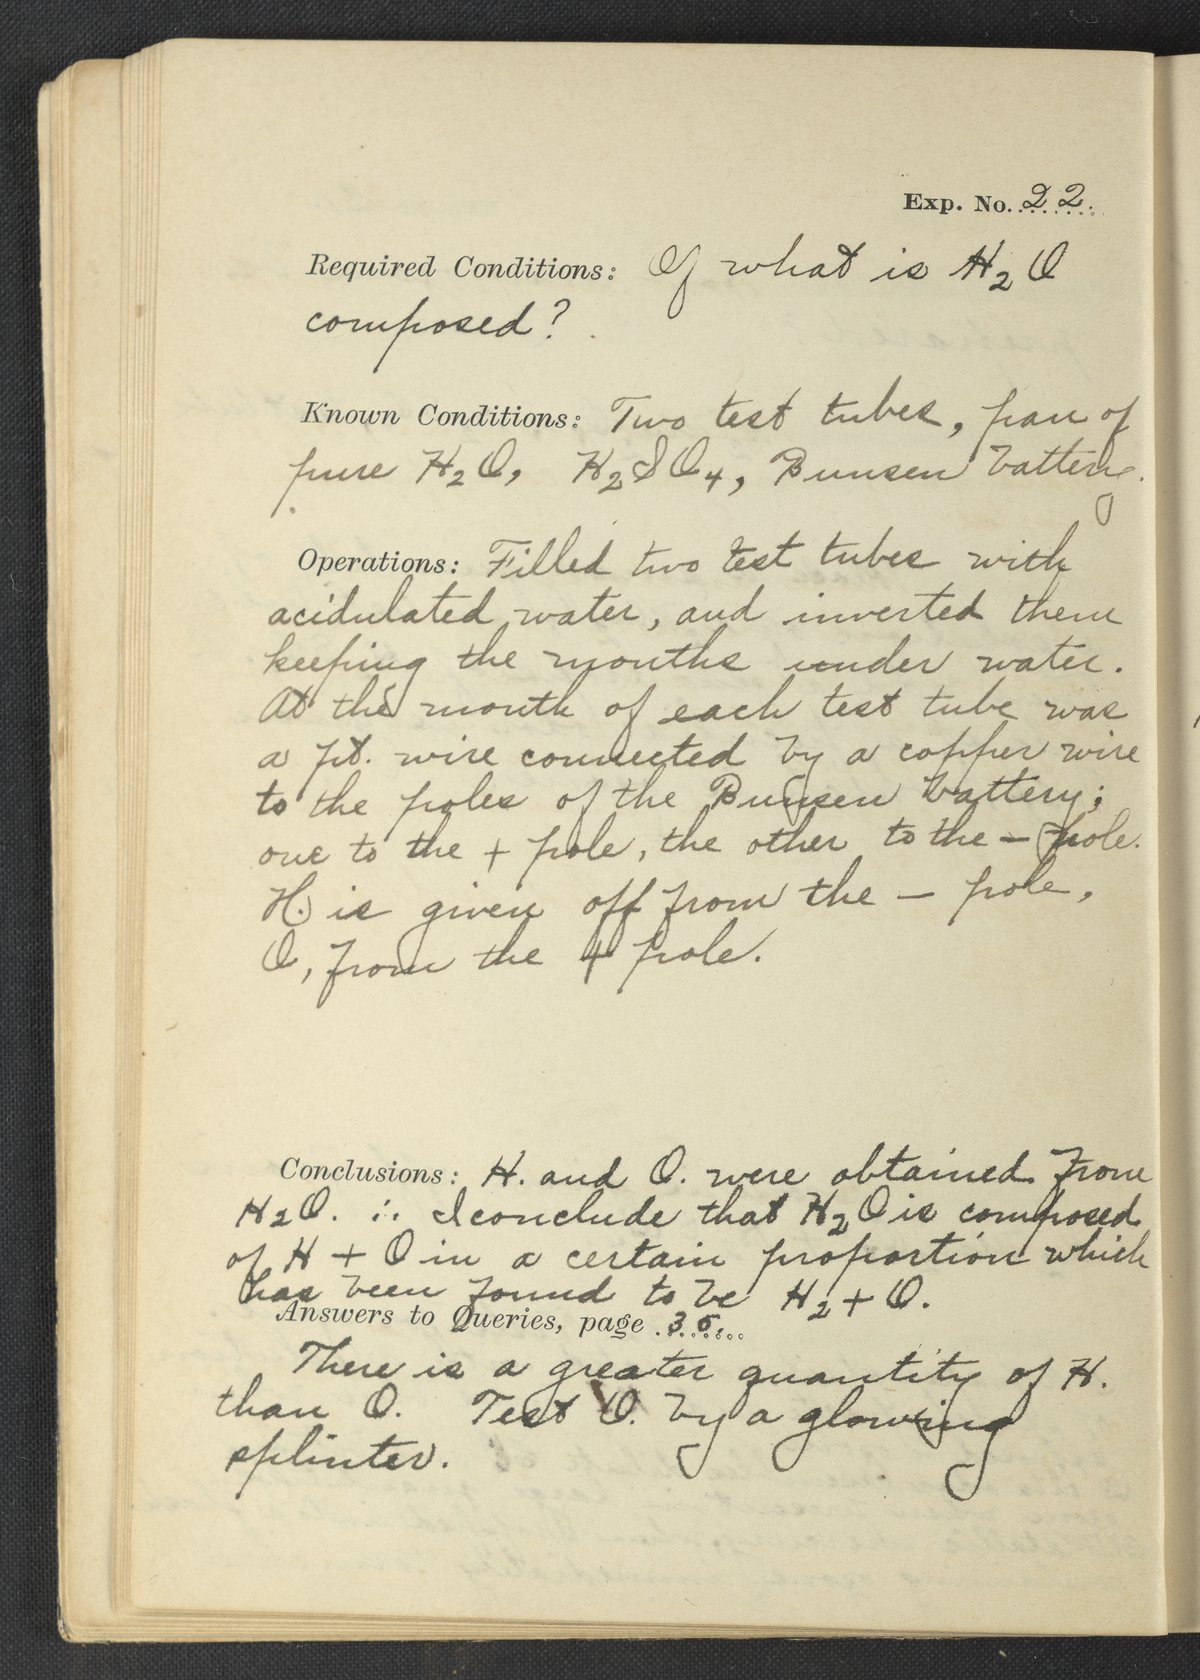 Exp. No. 22.
Required Conditions: Of what is H₂O
composed?
Known Conditions: Two test tubes, pan of
pure H₂O, H₂SO₄, Bunsen battery.
Operations: Filled two test tubes with
acidulated water, and inverted them
keeping the mouths under water.
At the mouth of each test tube was
a pt. wire connected by a copper wire
to the poles of the Bunsen battery;
one to the + pole, the other to the - pole.
H. is given off from the - pole,
O, from the + pole.
Conclusions: H. and O. were obtained from
H₂O. ∴ I conclude that H₂O is composed
of H + O in a certain proportion which
has been found to be H₂ + O.
Answers to Queries, page 35.
There is a greater quantity of H.
than O. Test O. by a glowing
splinter.